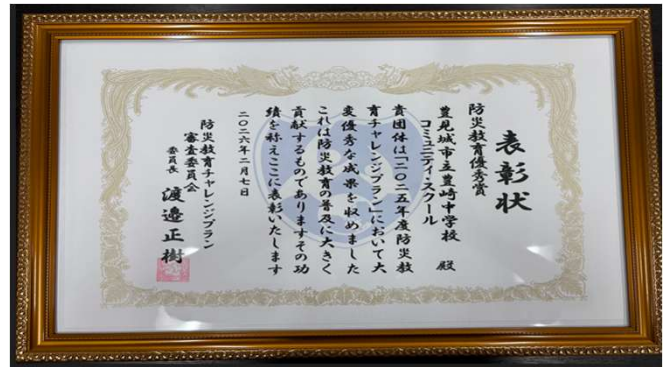 表彰状
防災教育優秀賞
豊見城市立豊崎中学校
コミュニティ・スクール 殿
貴団体は「二〇二五年度防災教
育チャレンジプラン」において大
変優秀な成果を収めました
これは防災教育の普及に大きく
貢献するものでありますその功
績を称えここに表彰いたします
二〇二六年二月七日
防災教育チャレンジプラン
審査委員会
委員長 渡邉正樹